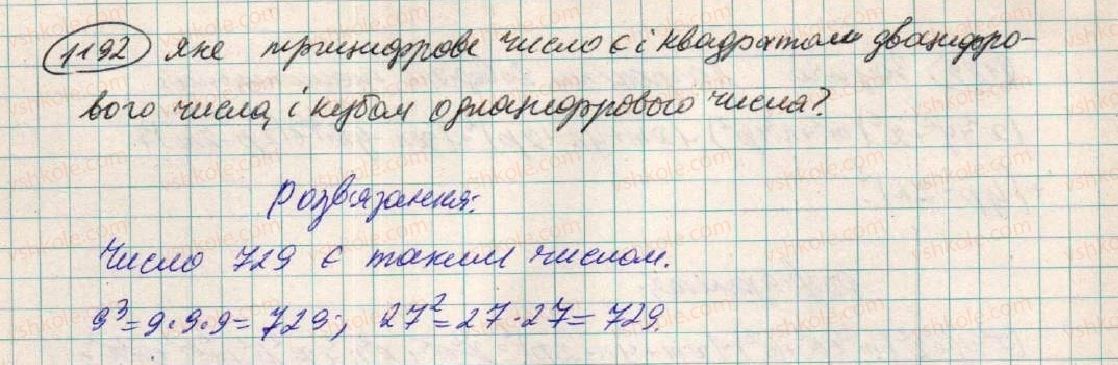 1192 Яке трицифрове число є і квадратом двоцифро-
вого числа, і кубом одноцифрового числа?
Розв'язання:
Число 729 є таким числом.
9³ = 9·9·9 = 729; 27² = 27·27 = 729.